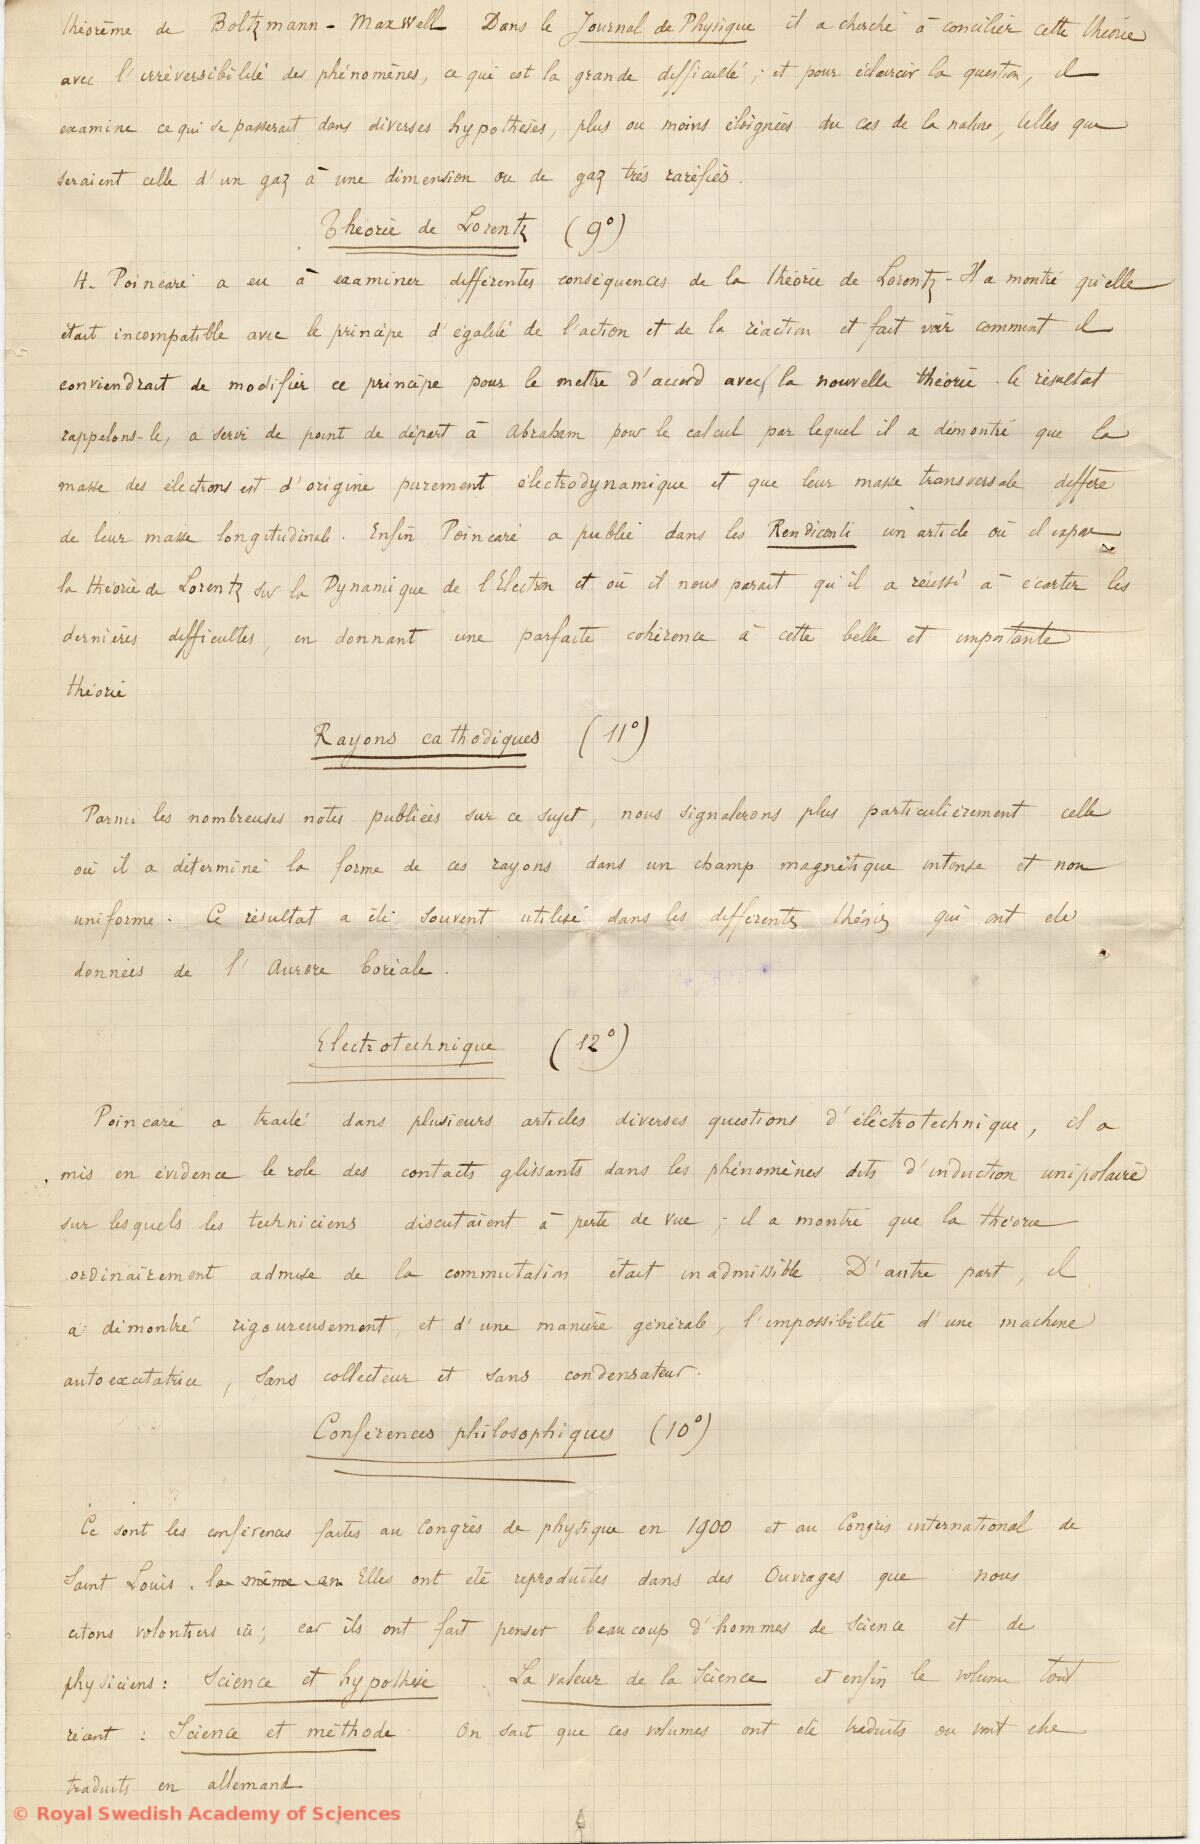 théorème de Boltzmann - Maxwell Dans le Journal de Physique il a cherché à concilier cette théorie
avec l'irréversibilité des phénomènes, ce qui est la grande difficulté ; et pour éclaircir la question, il
examine ce qui se passerait dans diverses hypothèses, plus ou moins éloignées du cas de la nature, telles que
seraient celle d'un gaz à une dimension ou de gaz très raréfiés.
Théorie de Lorentz (9°)
H. Poincaré a eu à examiner différentes conséquences de la théorie de Lorentz - Il a montré qu'elle
était incompatible avec le principe d'égalité de l'action et de la réaction et fait voir comment il
conviendrait de modifier ce principe pour le mettre d'accord avec la nouvelle théorie. Ce résultat
rappelons-le, a servi de point de départ à Abraham pour le calcul par lequel il a démontré que la
masse des électrons est d'origine purement électrodynamique et que leur masse transversale diffère
de leur masse longitudinale. Enfin Poincaré a publié dans les Rendiconti un article où il expose
la théorie de Lorentz sur la Dynamique de l'Electron et où il nous parait qu'il a réussi à écarter les
dernières difficultés, en donnant une parfaite cohérence à cette belle et importante
théorie
Rayons cathodiques (11°)
Parmi les nombreuses notes publiées sur ce sujet, nous signalerons plus particulièrement celle
où il a déterminé la forme de ces rayons dans un champ magnétique intense et non
uniforme. Ce résultat a été souvent utilisé dans les différentes théories qui ont été
données de l'Aurore boréale.
Electrotechnique (12°)
Poincaré a traité dans plusieurs articles diverses questions d'électrotechnique, il a
mis en évidence le role des contacts glissants dans les phénomènes dits d'induction unipolaire
sur lesquels les techniciens discutaient à perte de vue ; il a montré que la théorie
ordinairement admise de la commutation était inadmissible. D'autre part, il
a démontré rigoureusement, et d'une manière générale, l'impossibilité d'une machine
autoexcitatrice, sans collecteur et sans condensateur.
Conférences philosophiques (10°)
Ce sont les conférences faites au Congrès de physique en 1900 et au Congrès international de
Saint Louis. la même an Elles ont été reproduites dans des Ouvrages que nous
citons volontiers ici ; car ils ont fait penser beaucoup d'hommes de science et de
physiciens : Science et hypothèse. La valeur de la Science et enfin le volume tout
récent : Science et méthode. On sait que ces volumes ont été traduits ou vont etre
traduits en allemand
© Royal Swedish Academy of Sciences